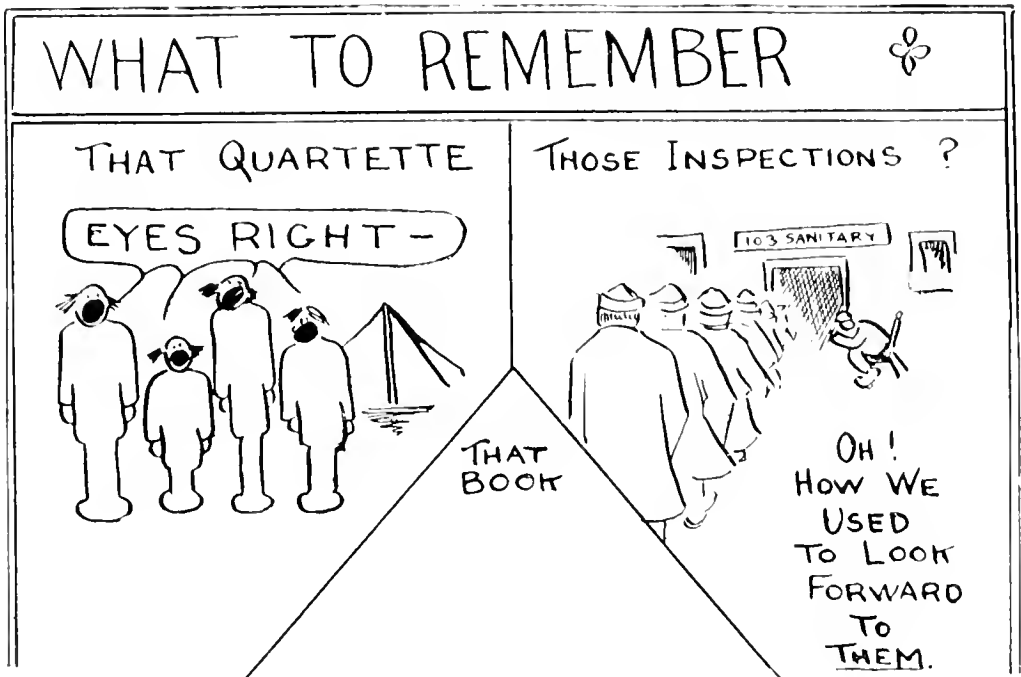 WHAT TO REMEMBER
THAT QUARTETTE
EYES RIGHT –
THOSE INSPECTIONS ?
103 SANITARY
OH!
HOW WE
USED
TO LOOK
FORWARD
TO
THEM.
THAT
BOOK